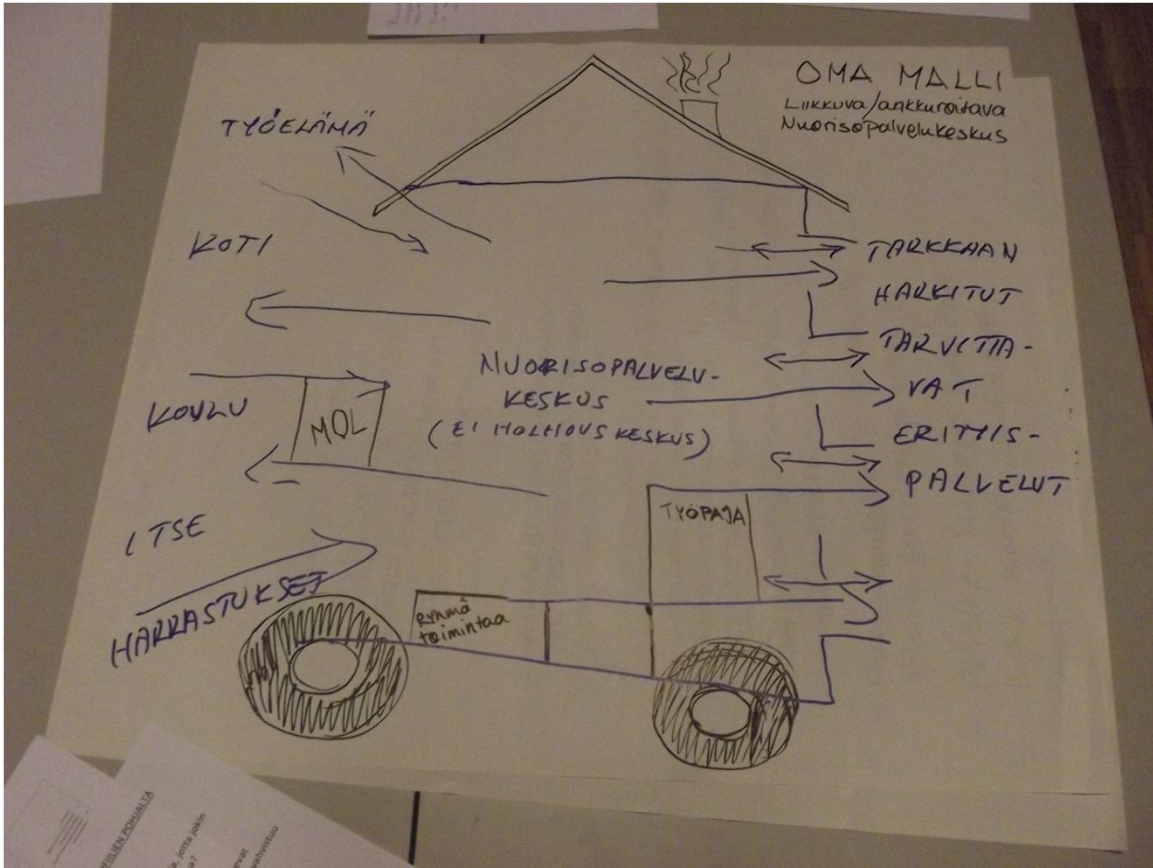 OMA MALLI
Liikkuva/ankkuroitava
Nuorisopalvelukeskus
TYÖELÄMÄ
KOTI
KOULU
MOL
ITSE
HARRASTUKSET
NUORISOPALVELU-
KESKUS
(EI HOLHOUSKESKUS)
TARKKAAN
HARKITUT
TARVITTA-
VAT
ERITYIS-
PALVELUT
TYÖPAJA
Ryhmä
toimintaa
POHJALTA
jotta jokin
vahvistuu